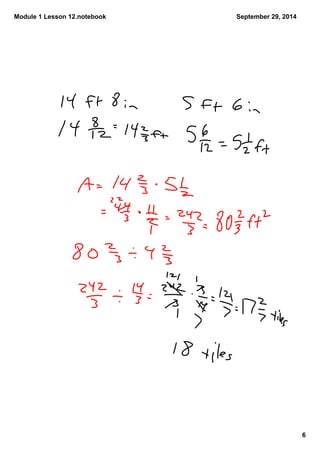 Module 1 Lesson 12.notebook September 29, 2014
14 ft 8 in 5 ft 6 in
14 8/12 = 14 2/3 ft 5 6/12 = 5 1/2 ft
A = 14 2/3 · 5 1/2
= 44/3 22 · 11/2 1 = 242/3 = 80 2/3 ft²
80 2/3 ÷ 4 2/3
242/3 ÷ 14/3 = 121 242/3 1 · 1 3/14 7 = 121/7 = 17 2/7 tiles
18 tiles
6